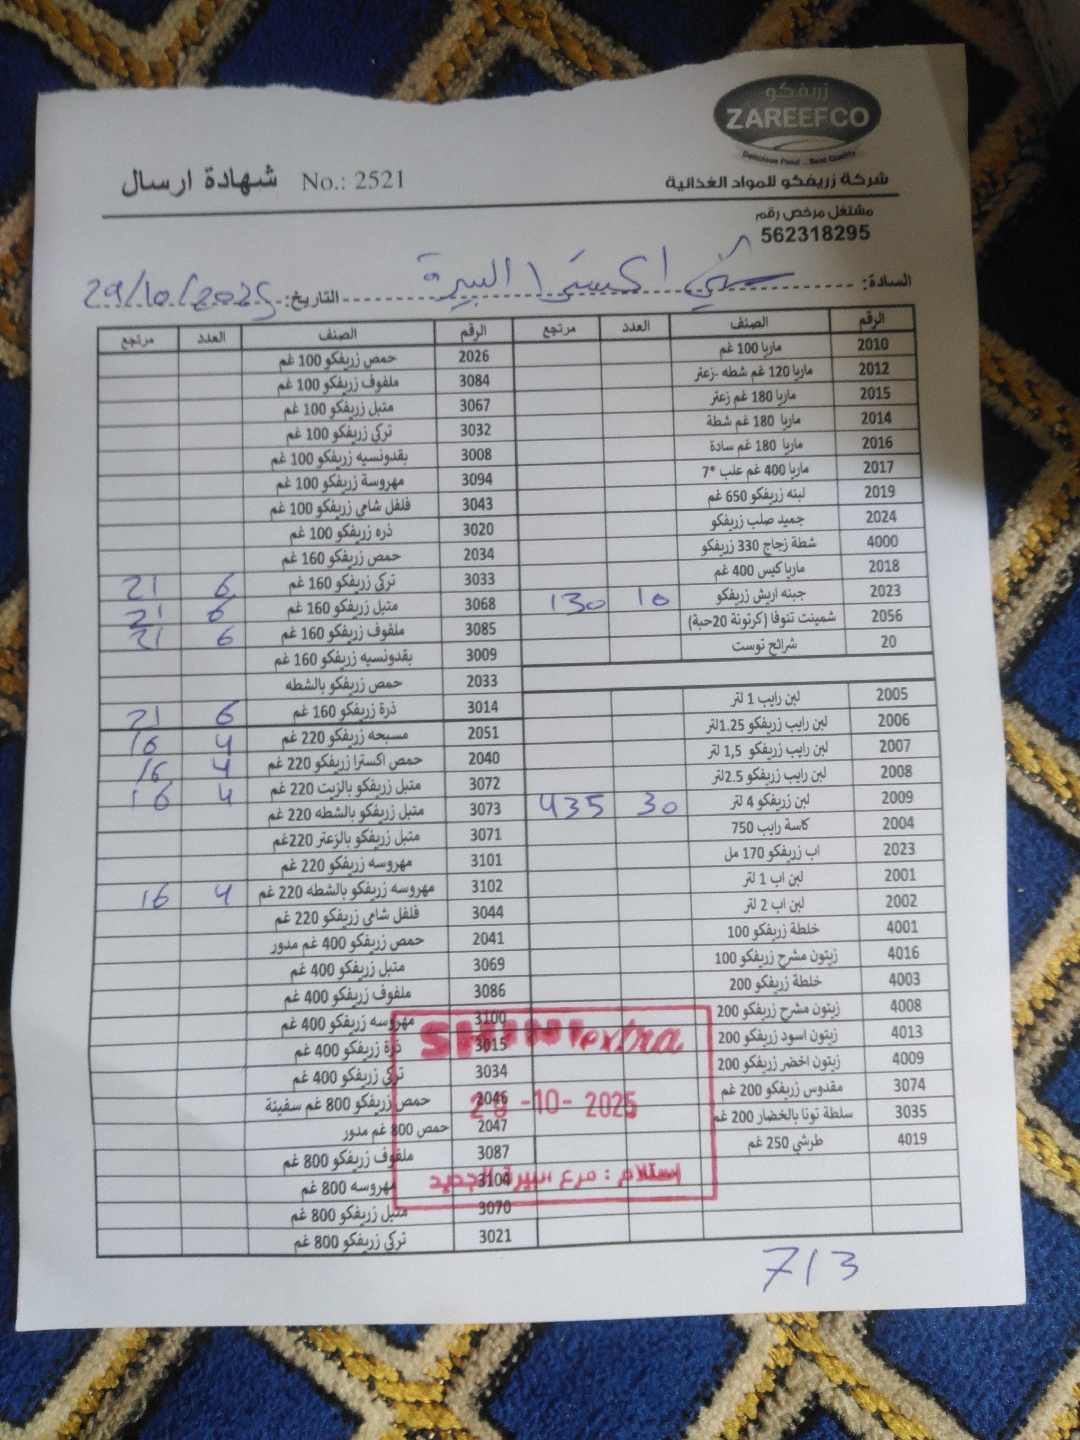 زريفكو
ZAREEFCO
Delicious Food .. Best Quality
شركة زريفكو للمواد الغذائية
شهادة ارسال No.: 2521
مشتغل مرخص رقم
562318295
السادة: البيرة التاريخ: 29/10/2025
الرقم الصنف العدد مرتجع الرقم الصنف العدد مرتجع
2010 ماريا 100 غم 2026 حمص زريفكو 100 غم
2012 ماريا 120 غم شطه -زعتر 3084 ملفوف زريفكو 100 غم
2015 ماريا 180 غم زعتر 3067 متبل زريفكو 100 غم
2014 ماريا 180 غم شطة 3032 تركي زريفكو 100 غم
2016 ماريا 180 غم سادة 3008 بقدونسيه زريفكو 100 غم
2017 ماريا 400 غم علب *7 3094 مهروسة زريفكو 100 غم
2019 لبنه زريفكو 650 غم 3043 فلفل شامي زريفكو 100 غم
2024 جميد صلب زريفكو 3020 ذره زريفكو 100 غم
4000 شطة زجاج 330 زريفكو 2034 حمص زريفكو 160 غم
2018 ماريا كيس 400 غم 3033 تركي زريفكو 160 غم 6 21
2023 جبنه اريش زريفكو 10 130 3068 متبل زريفكو 160 غم 6 21
2056 شمينت تنوفا (كرتونة 20حبة) 3085 ملفوف زريفكو 160 غم 6 21
20 شرائح توست 3009 بقدونسيه زريفكو 160 غم
2033 حمص زريفكو بالشطه
2005 لبن رايب 1 لتر 3014 ذرة زريفكو 160 غم 6 21
2006 لبن رايب زريفكو 1.25لتر 2051 مسبحه زريفكو 220 غم 4 16
2007 لبن رايب زريفكو 1,5 لتر 2040 حمص اكسترا زريفكو 220 غم 4 16
2008 لبن رايب زريفكو 2.5لتر 3072 متبل زريفكو بالزيت 220 غم 4 16
2009 لبن زريفكو 4 لتر 30 435 3073 متبل زريفكو بالشطه 220 غم
2004 كاسة رايب 750 3071 متبل زريفكو بالزعتر 220غم
2023 اب زريفكو 170 مل 3101 مهروسه زريفكو 220 غم
2001 لبن اب 1 لتر 3102 مهروسه زريفكو بالشطه 220 غم 4 16
2002 لبن اب 2 لتر 3044 فلفل شامي زريفكو 220 غم
4001 خلطة زريفكو 100 2041 حمص زريفكو 400 غم مدور
4016 زيتون مشرح زريفكو 100 3069 متبل زريفكو 400 غم
4003 خلطة زريفكو 200 3086 ملفوف زريفكو 400 غم
4008 زيتون مشرح زريفكو 200 3100 مهروسه زريفكو 400 غم
4013 زيتون اسود زريفكو 200 3015 ذرة زريفكو 400 غم
4009 زيتون اخضر زريفكو 200 3034 تركي زريفكو 400 غم
3074 مقدوس زريفكو 200 غم 2046 حمص زريفكو 800 غم سفينة
3035 سلطة تونا بالخضار 200 غم 2047 حمص 800 غم مدور
4019 طرشي 250 غم 3087 ملفوف زريفكو 800 غم
3104 مهروسه 800 غم
3070 متبل زريفكو 800 غم
3021 تركي زريفكو 800 غم
SHINI extra
-10- 2025
استلام : فرع البيرة الجديد
713